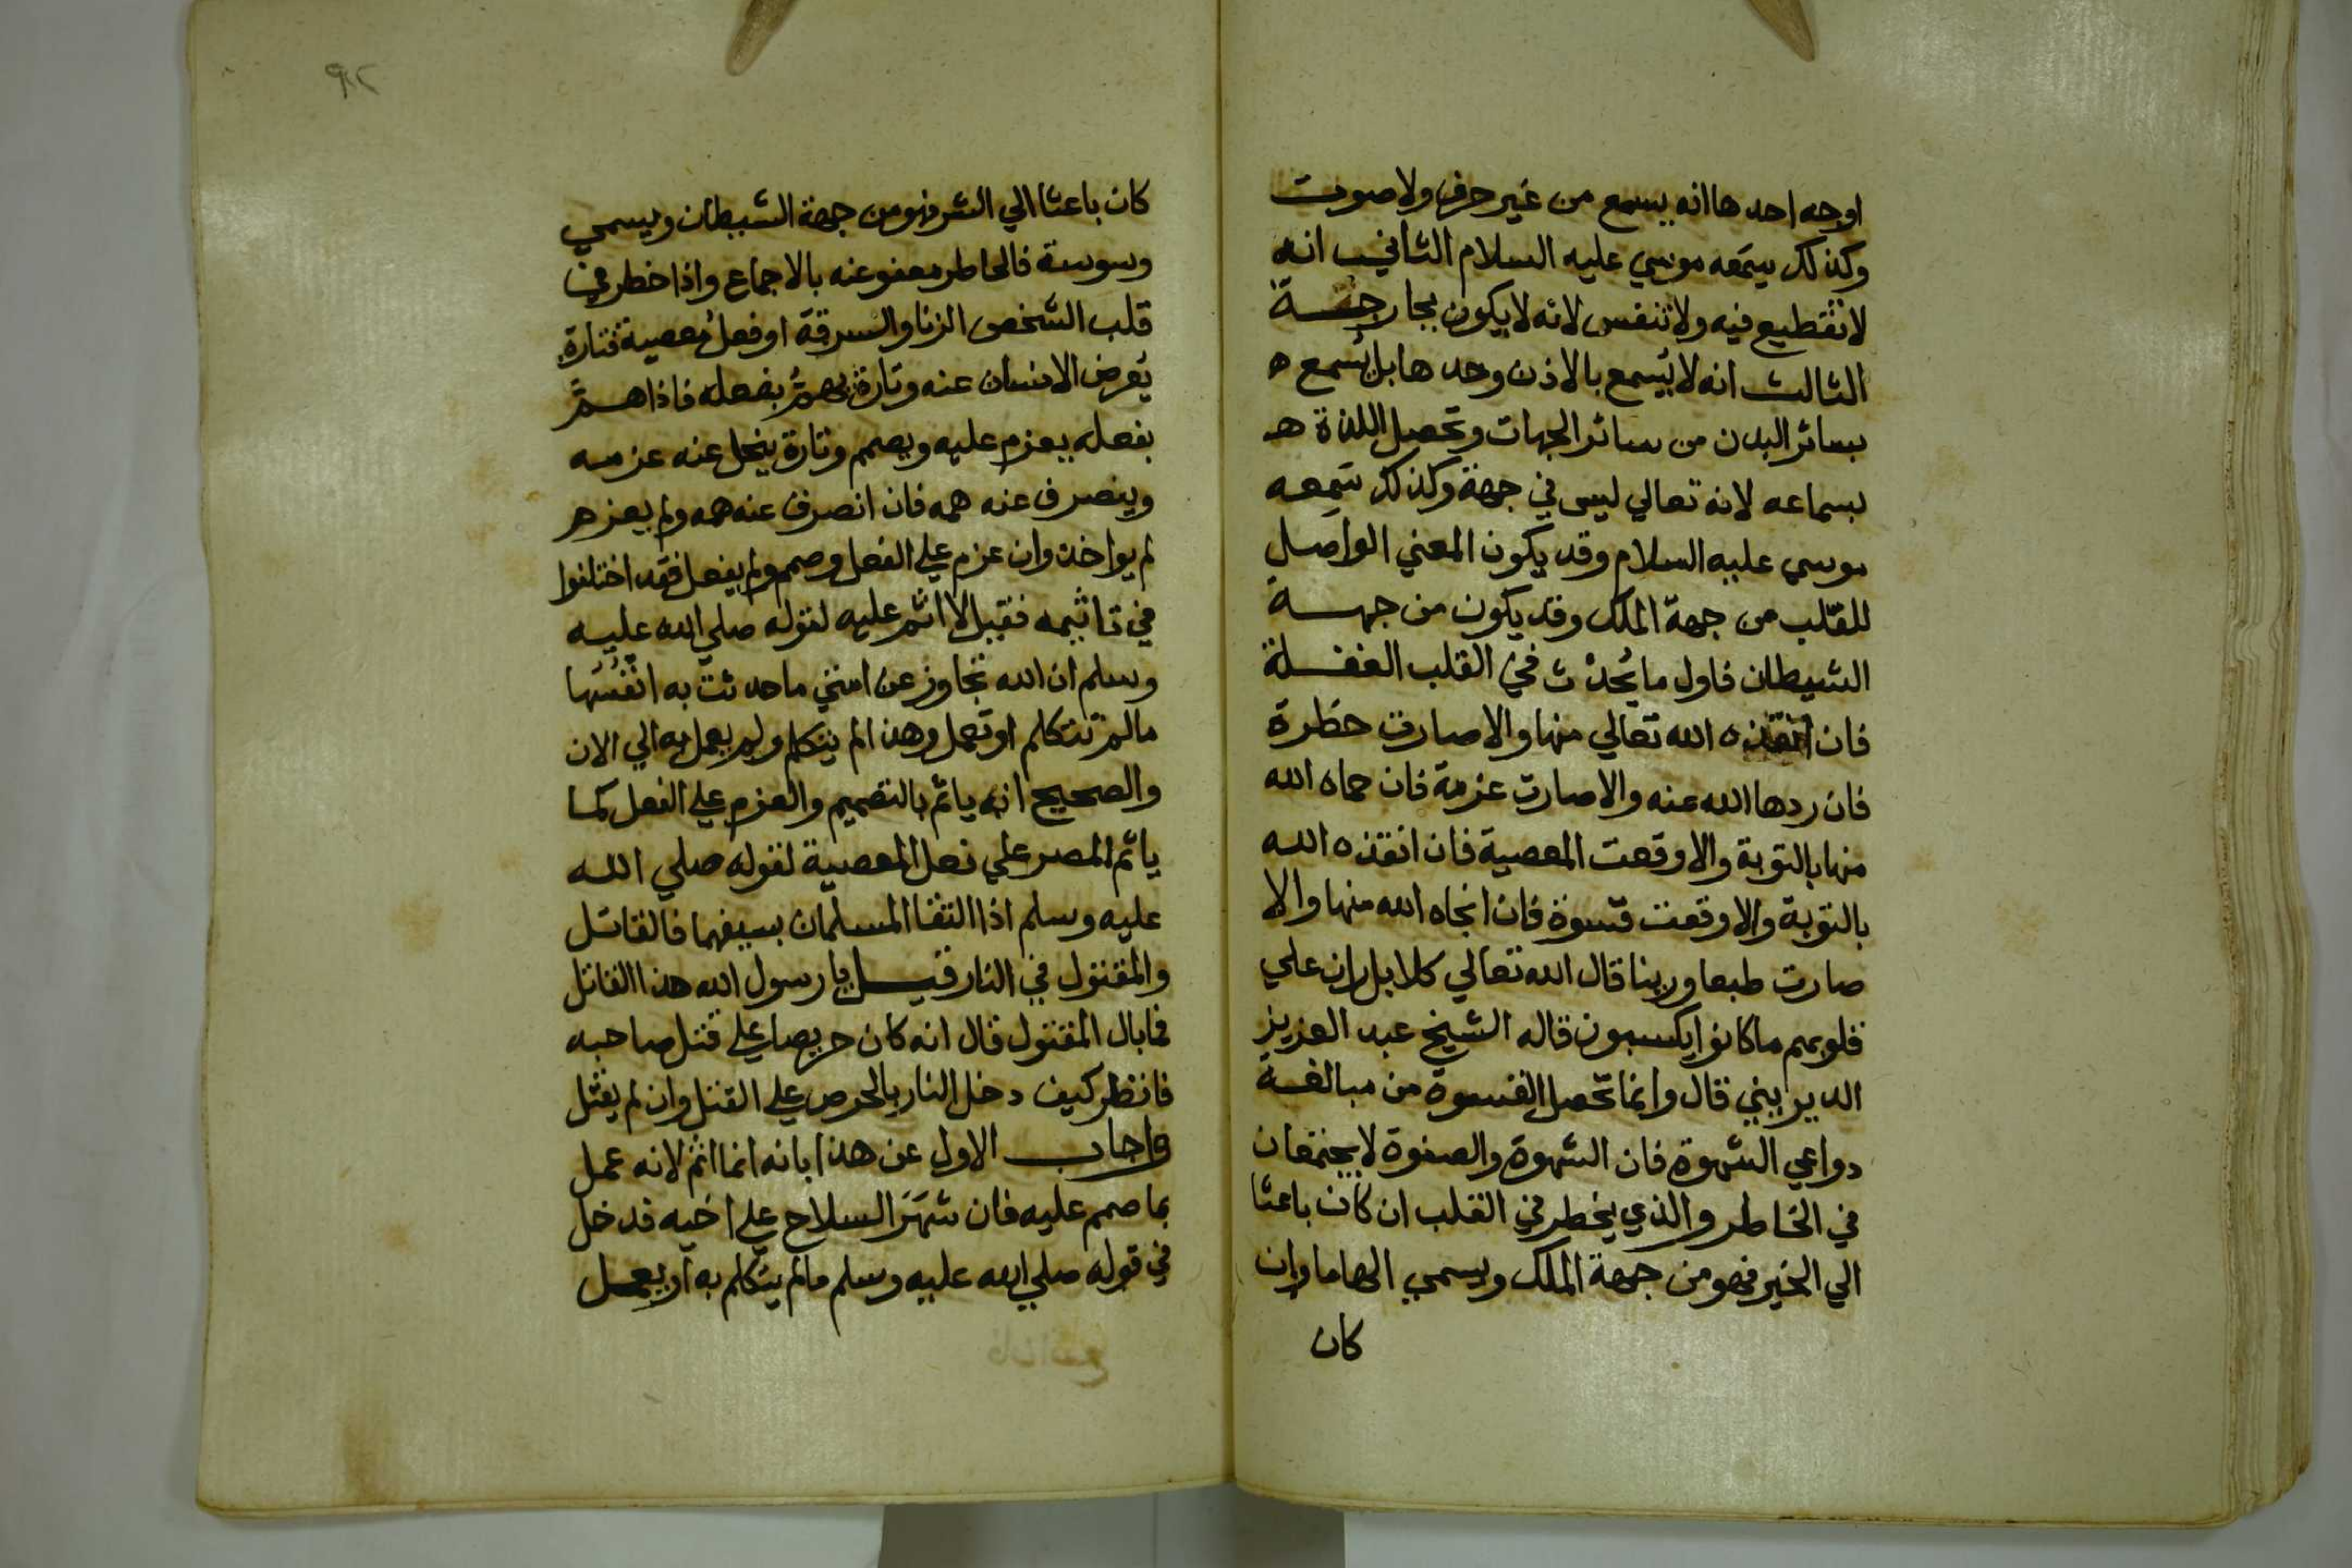 اوجه احدها انه يسمع من غير حرف ولا صوت
وكذلك يسمعه موسي عليه السلام الثاني انه
لا تقطيع فيه ولا تنفس لانه لا يكون بجارحة
الثالث انه لا يسمع بالاذن وحدها بل يسمع ه
بسائر البدن من سائر الجهات وتحصل اللذة هـ
بسماعه لانه تعالي ليس في جهة وكذلك سمعه
موسي عليه السلام وقد يكون المعني الواصل
للقلب من جهة الملك وقد يكون من جهة
الشيطان فاول ما يحدث في القلب الغفلة
فان انقذه الله تعالي منها والا صارت خطرة
فان ردها الله عنه والا صارت عزمة فان حماه الله
منها بالتوبة والا وقعت المعصية فان انقذه الله
بالتوبة والا وقعت قسوة فان انجاه الله منها والا
صارت طبعا ورينا قال الله تعالي كلا بل ران علي
قلوبهم ما كانوا يكسبون قاله الشيخ عبد العزيز
الديريني قال وانما تحصل القسوة من مبالغة
دواعي الشهوة فان الشهوة والصفوة لا يجتمعان
في الخاطر والذي يخطر في القلب ان كان باعثا
الي الخير فهو من جهة الملك ويسمي الهاما وان
كان
٩٢
كان باعثا الي الشر فهو من جهة الشيطان ويسمي
وسوسة فالخاطر معفو عنه بالاجماع واذا خطر في
قلب الشخص الزنا والسرقة او فعل معصية فتارة
يعرض الانسان عنه وتارة يهم بفعله فاذا هم
بفعله يعزم عليه ويصمم وتارة ينحل عنه عزمه
وينصرف عنه همه فان انصرف عنه همه ولم يعزم
لم يواخذ وان عزم علي الفعل وصمم ولم يفعل فقد اختلفوا
في تاثيمه فقيل لا اثم عليه لقوله صلي الله عليه
وسلم ان الله تجاوز عن امتي ما حدثت به انفسها
مالم تتكلم او تعمل وهذا لم يتكلم ولم يعمل به الي الان
والصحيح انه ياثم بالتصميم والعزم علي الفعل كما
ياثم المصر علي فعل المعصية لقوله صلي الله
عليه وسلم اذا التقا المسلمان بسيفهما فالقاتل
والمقتول في النار قيل يا رسول الله هذا القاتل
فما بال المقتول قال انه كان حريصا علي قتل صاحبه
فانظر كيف دخل النار بالحرص علي القتل وان لم يقتل
واجاب الاول عن هذا بانه انما اثم لانه عمل
بما صمم عليه فان شهر السلاح علي اخيه فدخل
في قوله صلي الله عليه وسلم مالم يتكلم به او يعمل